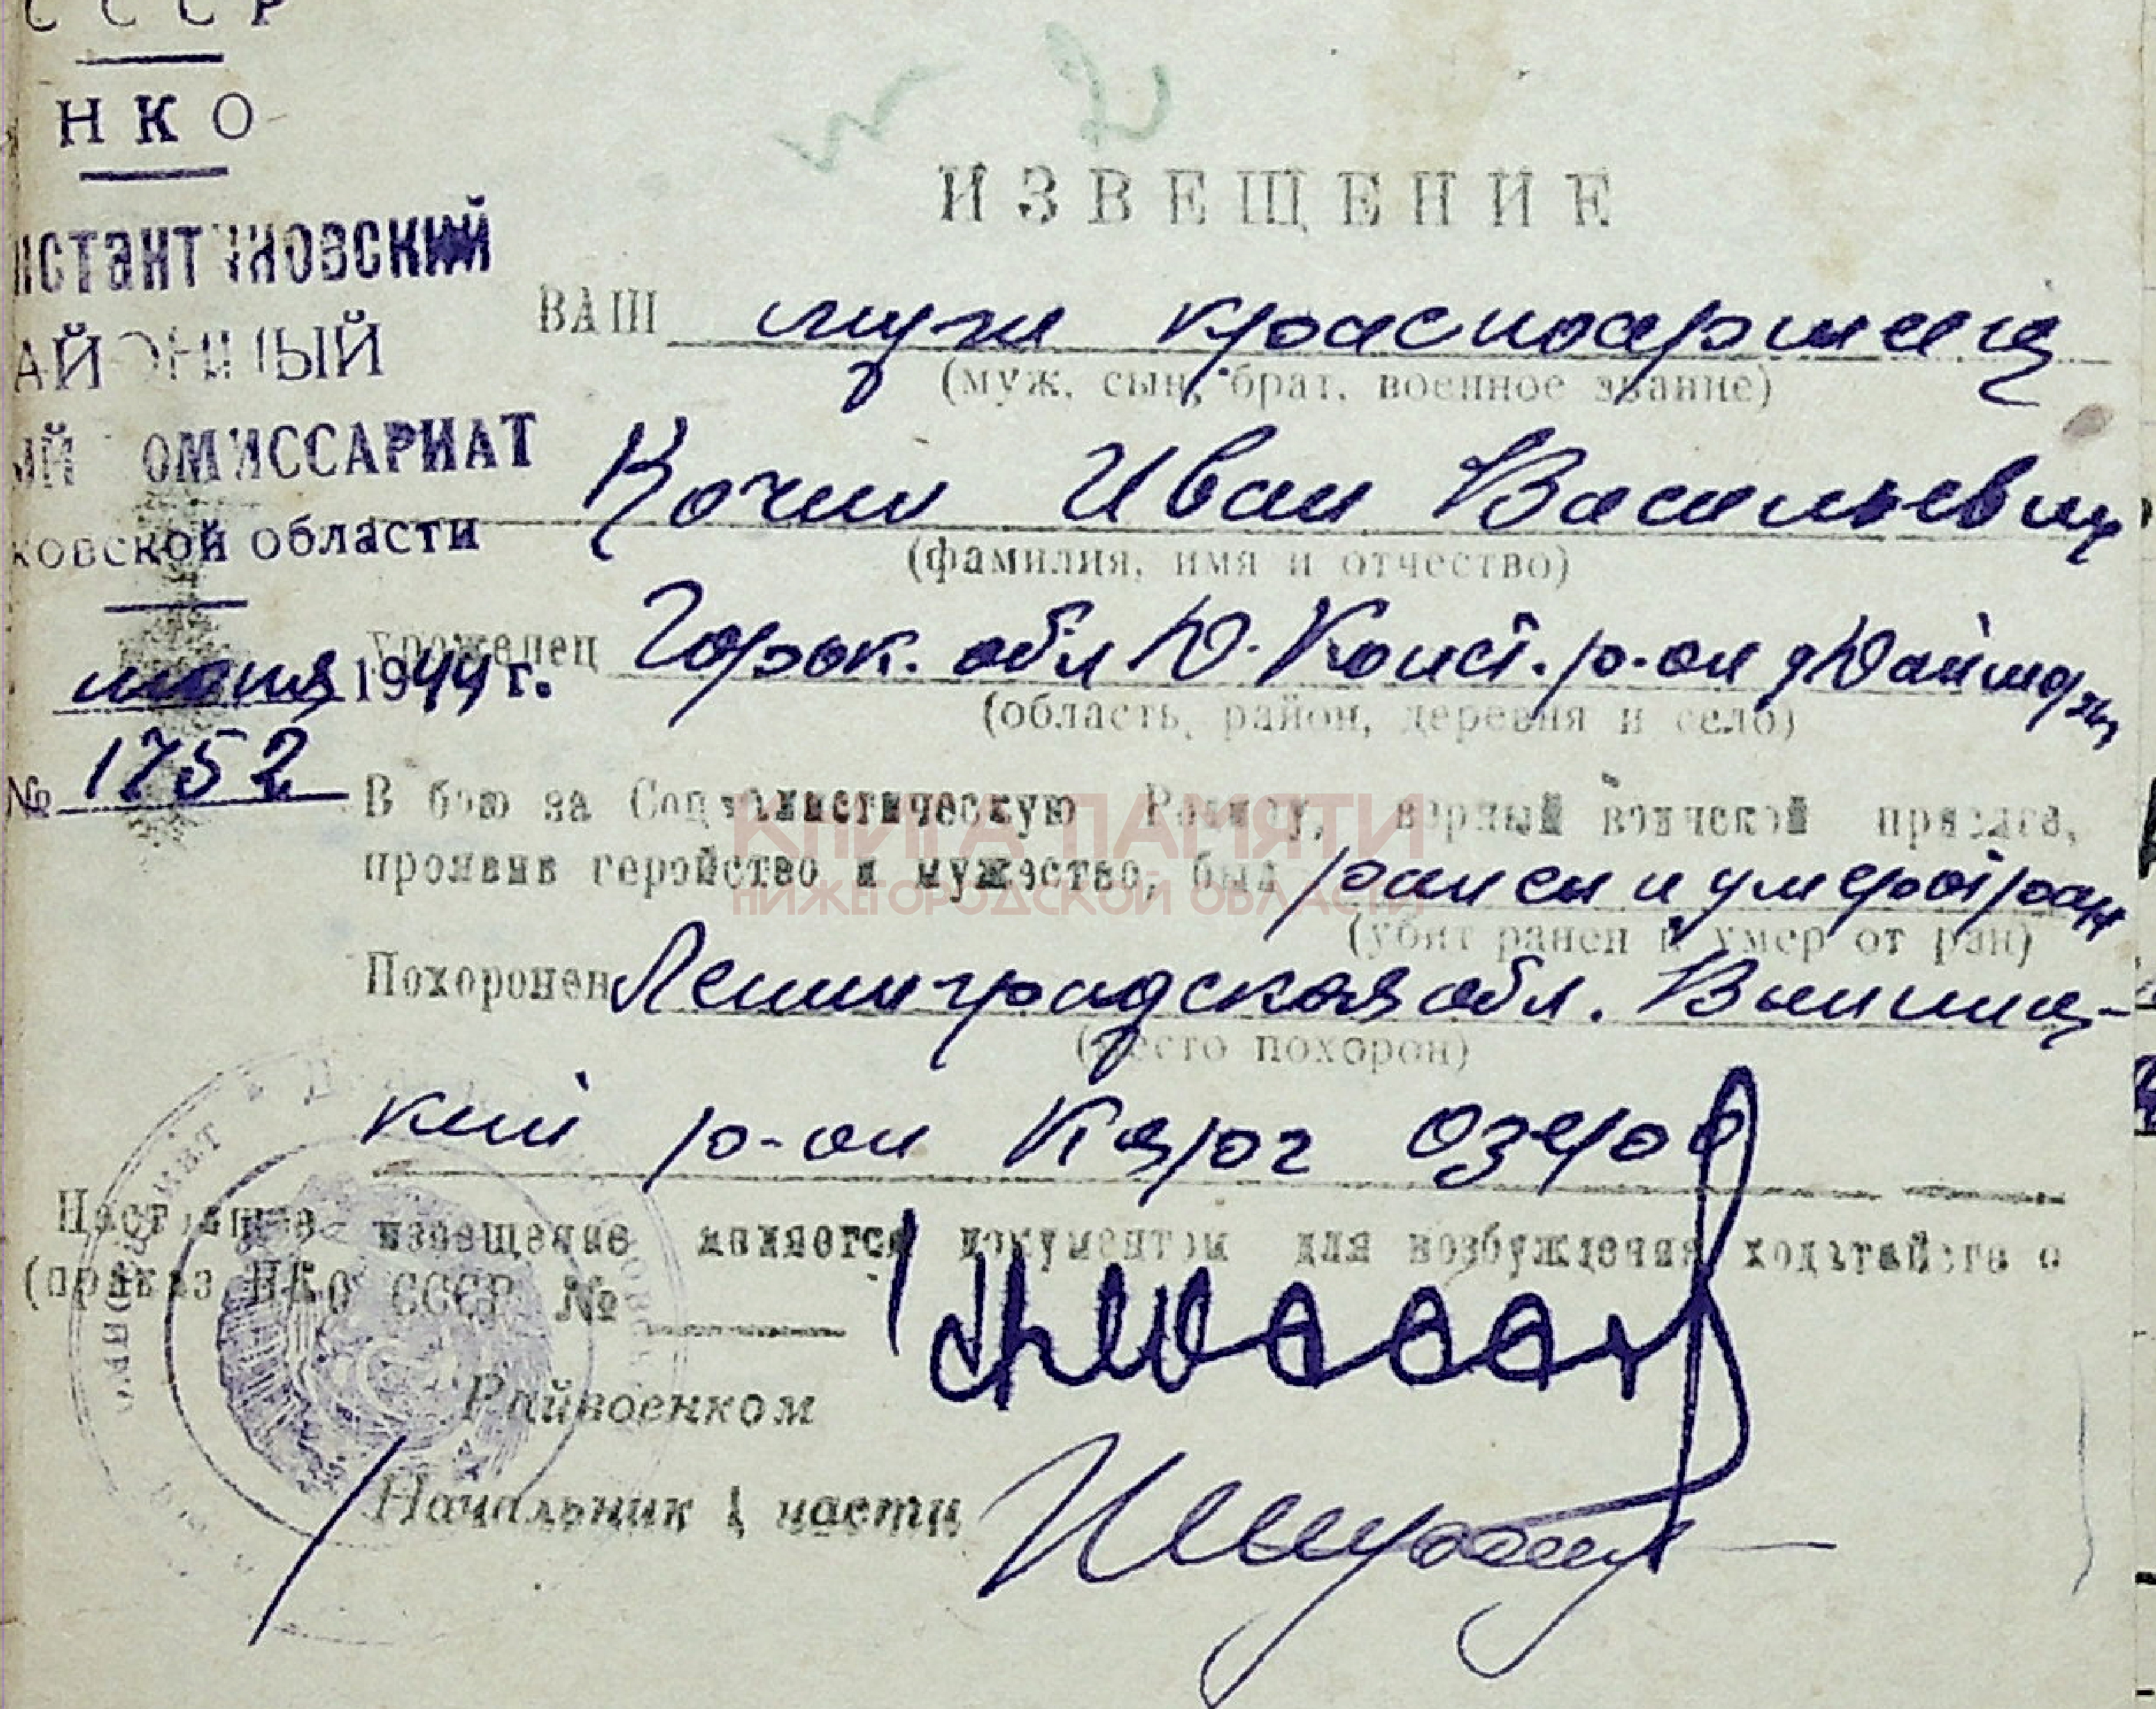 СССР
НКО
нстантиновский
айонный
ый комиссариат
ковской области
июня 1944 г.
№ 1752
ИЗВЕЩЕНИЕ
ВАШ муж красноармеец
(муж, сын, брат, военное звание)
Кочин Иван Васильевич
(фамилия, имя и отчество)
уроженец Горьк. обл Д. Конст. р-он д
(область, район, деревня и село)
В бою за Социалистическую Родину, верный воинской присяге,
проявив геройство и мужество, был ранен и умер от ран
(убит ранен и умер от ран)
Похоронен Ленинградская обл. Винниц-
(место похорон)
кий р-он озеро
Настоящее извещение является документом для возбуждения ходатайства о
(приказ НКО СССР №
Райвоенком
Начальник 1 части
КНИГА ПАМЯТИ
НИЖЕГОРОДСКОЙ ОБЛАСТИ